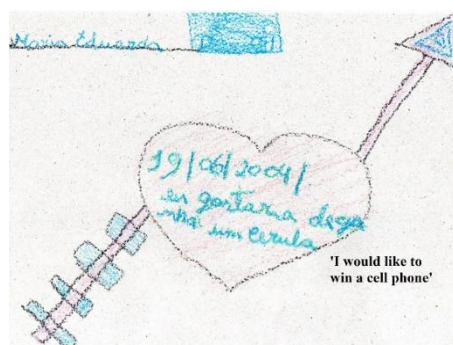 Maria Eduarda
19/06/2004/
eu gostaria dega
nhar um cerula
'I would like to
win a cell phone'